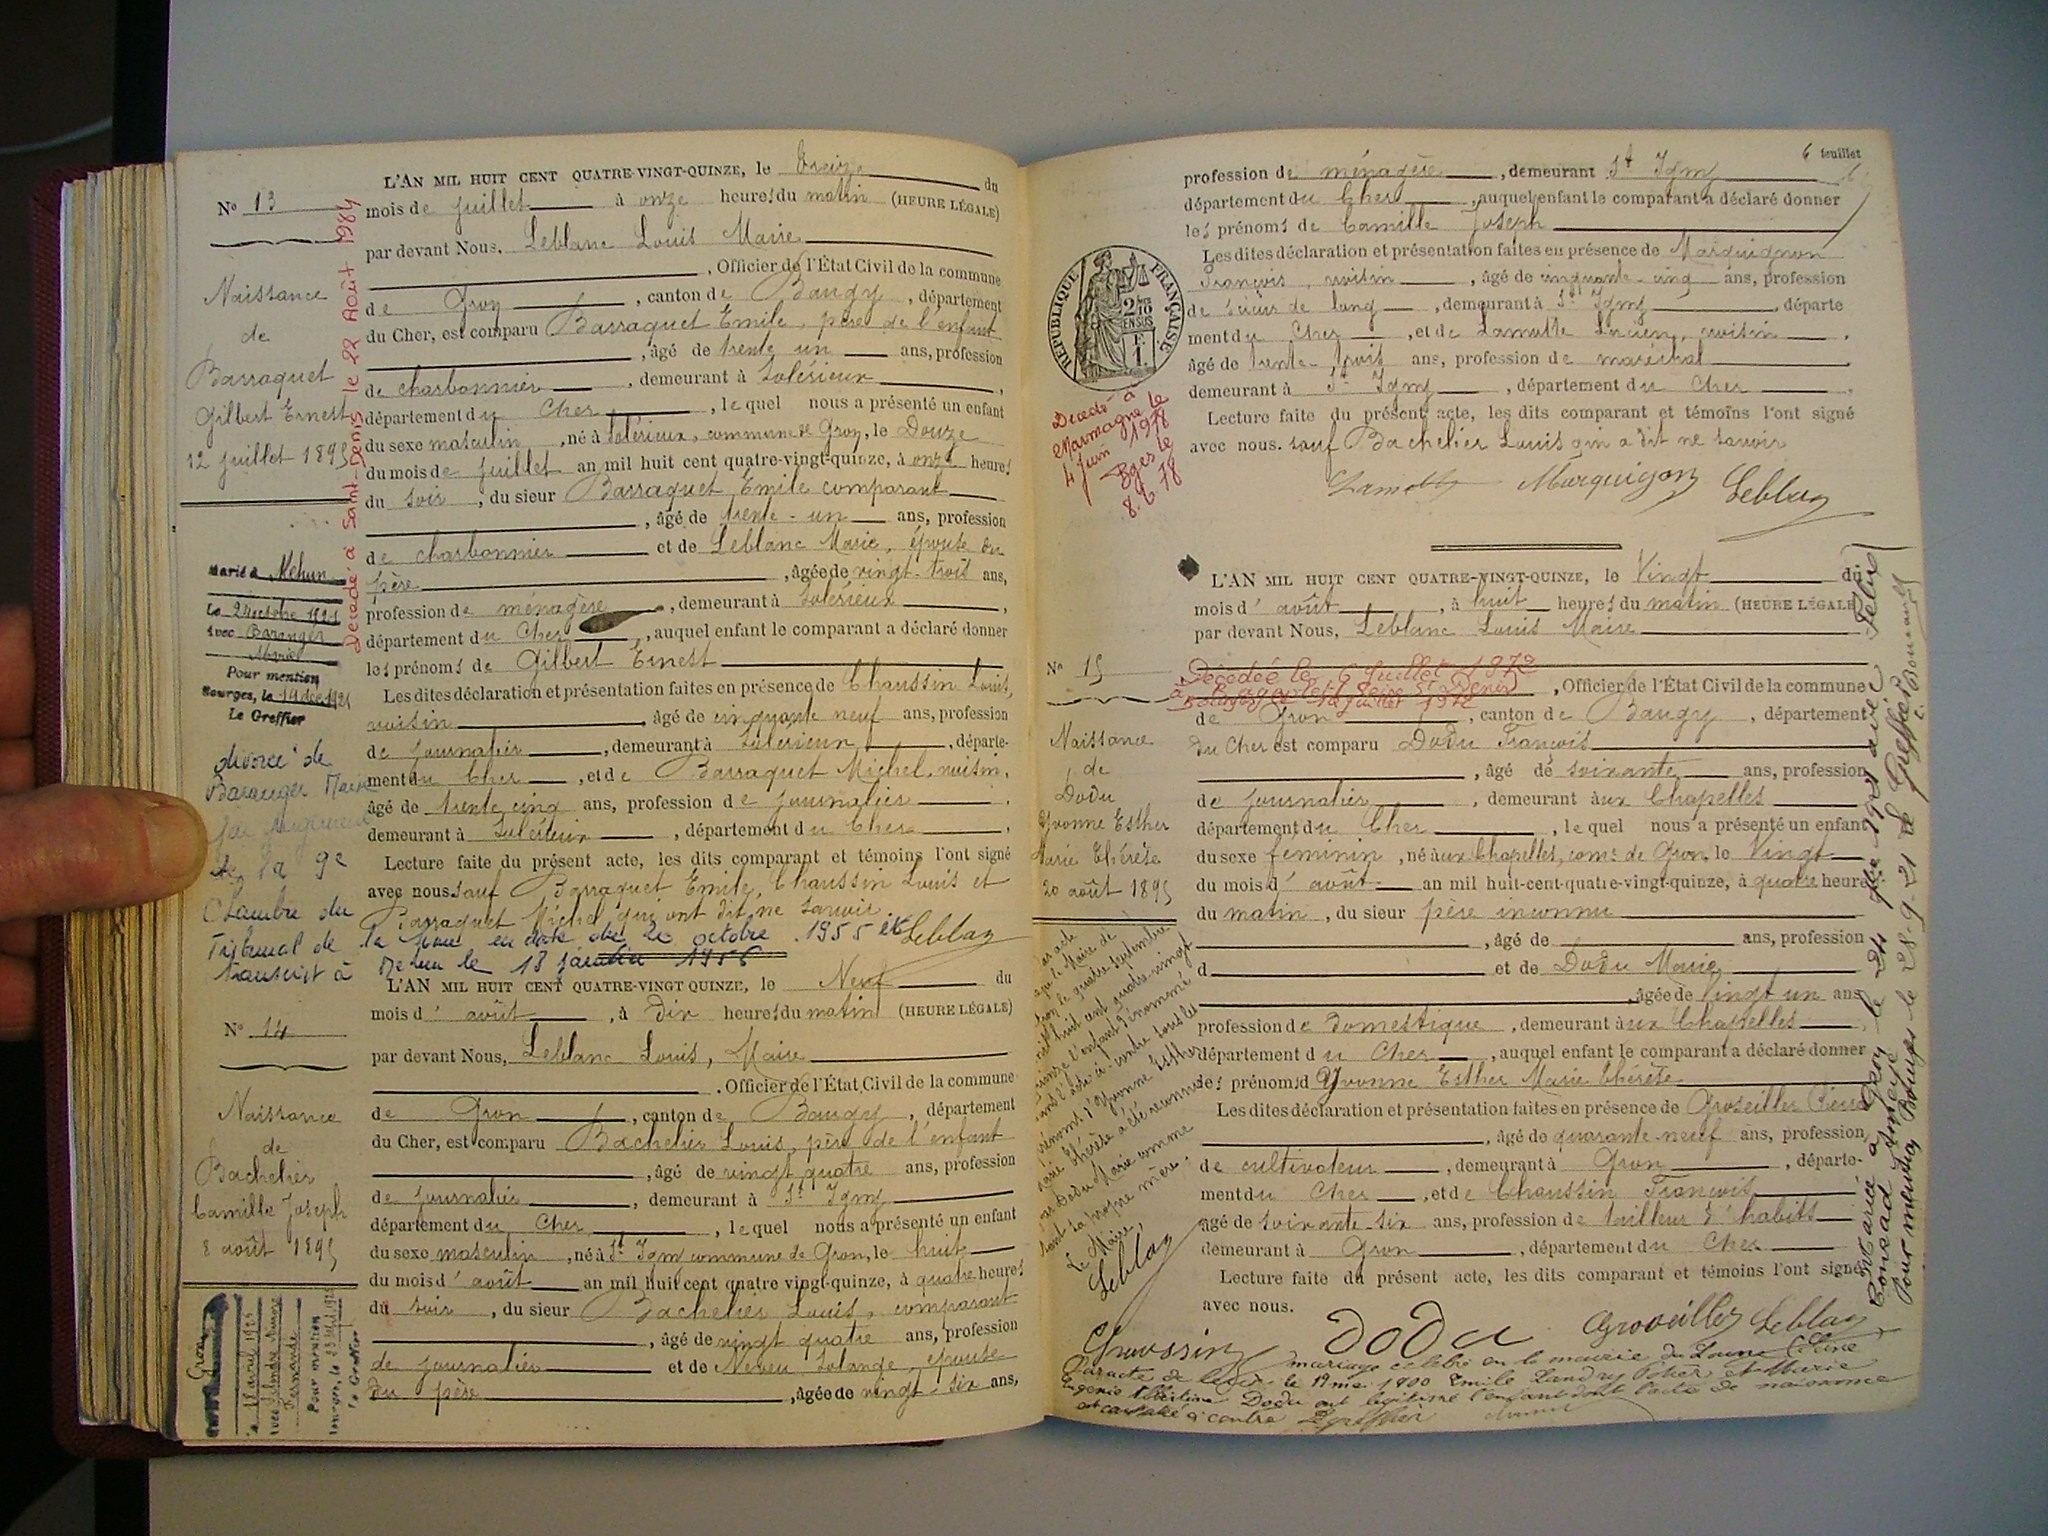 L'AN MIL HUIT CENT QUATRE-VINGT-QUINZE, le treize du
No 13
mois de juillet à onze heures du matin (HEURE LÉGALE)
par devant Nous, Leblanc Louis Maire
, Officier de l'État Civil de la commune
de Gron, canton de Baugy, département
du Cher, est comparu Barraquet Emile, père de l'enfant
, âgé de trente un ans, profession
de charbonnier, demeurant à Solérieux,
département du Cher, le quel nous a présenté un enfant
du sexe masculin, né à Solérieux, commune de Gron, le Douze
du mois de juillet an mil huit cent quatre-vingt-quinze, à onze heures
du soir, du sieur Barraquet Emile comparant
, âgé de trente-un ans, profession
de charbonnier et de Leblanc Marie, épouse du
père, âgée de vingt-trois ans,
profession de ménagère, demeurant à Solérieux,
département du Cher, auquel enfant le comparant a déclaré donner
les prénoms de Gilbert Ernest
Les dites déclaration et présentation faites en présence de Chaussin Louis,
voisin, âgé de cinquante neuf ans, profession
de journalier, demeurant à Solérieux, départe-
ment du Cher, et de Barraquet Michel, voisin,
âgé de trente cinq ans, profession de journalier,
demeurant à Solérieux, département du Cher.
Lecture faite du présent acte, les dits comparant et témoins l'ont signé
avec nous sauf Barraquet Emile, Chaussin Louis et
Barraquet Michel qui ont dit ne savoir.
Leblanc
Naissance
de
Barraquet
Gilbert Ernest
12 juillet 1895
Décédé à Saint-Denis le 22 Août 1984
Marié à Mehun
le 24 octobre 1921
avec Baranger
Marie
Pour mention
Bourges, le 19 déc 1921
Le Greffier
divorcé de
Baranger Marie
par jugement
de la 9e
Chambre du
Tribunal de la Seine en date du 20 octobre 1955 et
transcrit à Mehun le 18 janvier 1956
L'AN MIL HUIT CENT QUATRE-VINGT QUINZE, le Neuf du
mois d'août, à dix heures du matin (HEURE LÉGALE)
No 14
par devant Nous, Leblanc Louis, Maire
, Officier de l'État Civil de la commune
de Gron, canton de Baugy, département
du Cher, est comparu Bachelier Louis, père de l'enfant
, âgé de vingt quatre ans, profession
de journalier, demeurant à St Igny
département du Cher, le quel nous a présenté un enfant
du sexe masculin, né à St Igny commune de Gron, le huit
du mois d'août an mil huit cent quatre vingt-quinze, à quatre heures
du soir, du sieur Bachelier Louis, comparant
, âgé de vingt quatre ans, profession
de journalier et de Neveu Solange, épouse
du père, âgée de vingt-six ans,
Naissance
de
Bachelier
Camille Joseph
8 août 1895
Gron
Pour mention
Le Greffier
6 feuillet
profession de ménagère, demeurant St Igny
département du Cher, auquel enfant le comparant a déclaré donner
les prénoms de Camille Joseph
Les dites déclaration et présentation faites en présence de Marquignon
François, voisin, âgé de cinquante-cinq ans, profession
de scieur de long, demeurant à St Igny, départe
ment du Cher, et de Lamotte Lucien, voisin,
âgé de trente-trois ans, profession de maréchal
demeurant à St Igny, département du Cher,
Lecture faite du présent acte, les dits comparant et témoins l'ont signé
avec nous. sauf Bachelier Louis qui a dit ne savoir
Lamotte Marquignon Leblanc
RÉPUBLIQUE FRANÇAISE.
2/10 EN SUS
F. 1.
Décédé à
Marmagne le
4 juin 1978
Bges le
8.6.78
L'AN MIL HUIT CENT QUATRE-VINGT-QUINZE, le Vingt du
mois d'août, à huit heures du matin (HEURE LÉGALE
par devant Nous, Leblanc Louis Maire
No 15
Décédée le 6 Juillet 1972
, Officier de l'État Civil de la commune
de Gron, canton de Baugy, département
du Cher est comparu Dodu François
, âgé de soixante ans, profession
de journalier, demeurant aux Chapelles
département du Cher, le quel nous a présenté un enfant
du sexe féminin, né aux Chapelles, com. de Gron, le Vingt
du mois d'août an mil huit-cent-quatre-vingt-quinze, à quatre heure
du matin, du sieur père inconnu
, âgé de ans, profession
d et de Dodu Marie
, âgée de Vingt un ans
profession de domestique, demeurant aux Chapelles,
département du Cher, auquel enfant le comparant a déclaré donner
les prénoms d Yvonne Esther Marie Thérèse.
Les dites déclaration et présentation faites en présence de Groseiller Pierre
, âgé de quarante-neuf ans, profession
de cultivateur, demeurant à Gron, départe-
ment du Cher, et de Chaussin François
âgé de soixante-six ans, profession de tailleur d'habits
demeurant à Gron, département du Cher
Lecture faite du présent acte, les dits comparant et témoins l'ont signé
avec nous.
Chaussin DODU Groseiller Leblanc
Naissance
de
Dodu
Yvonne Esther
Marie Thérèse
20 août 1895
le Maire,
Leblanc